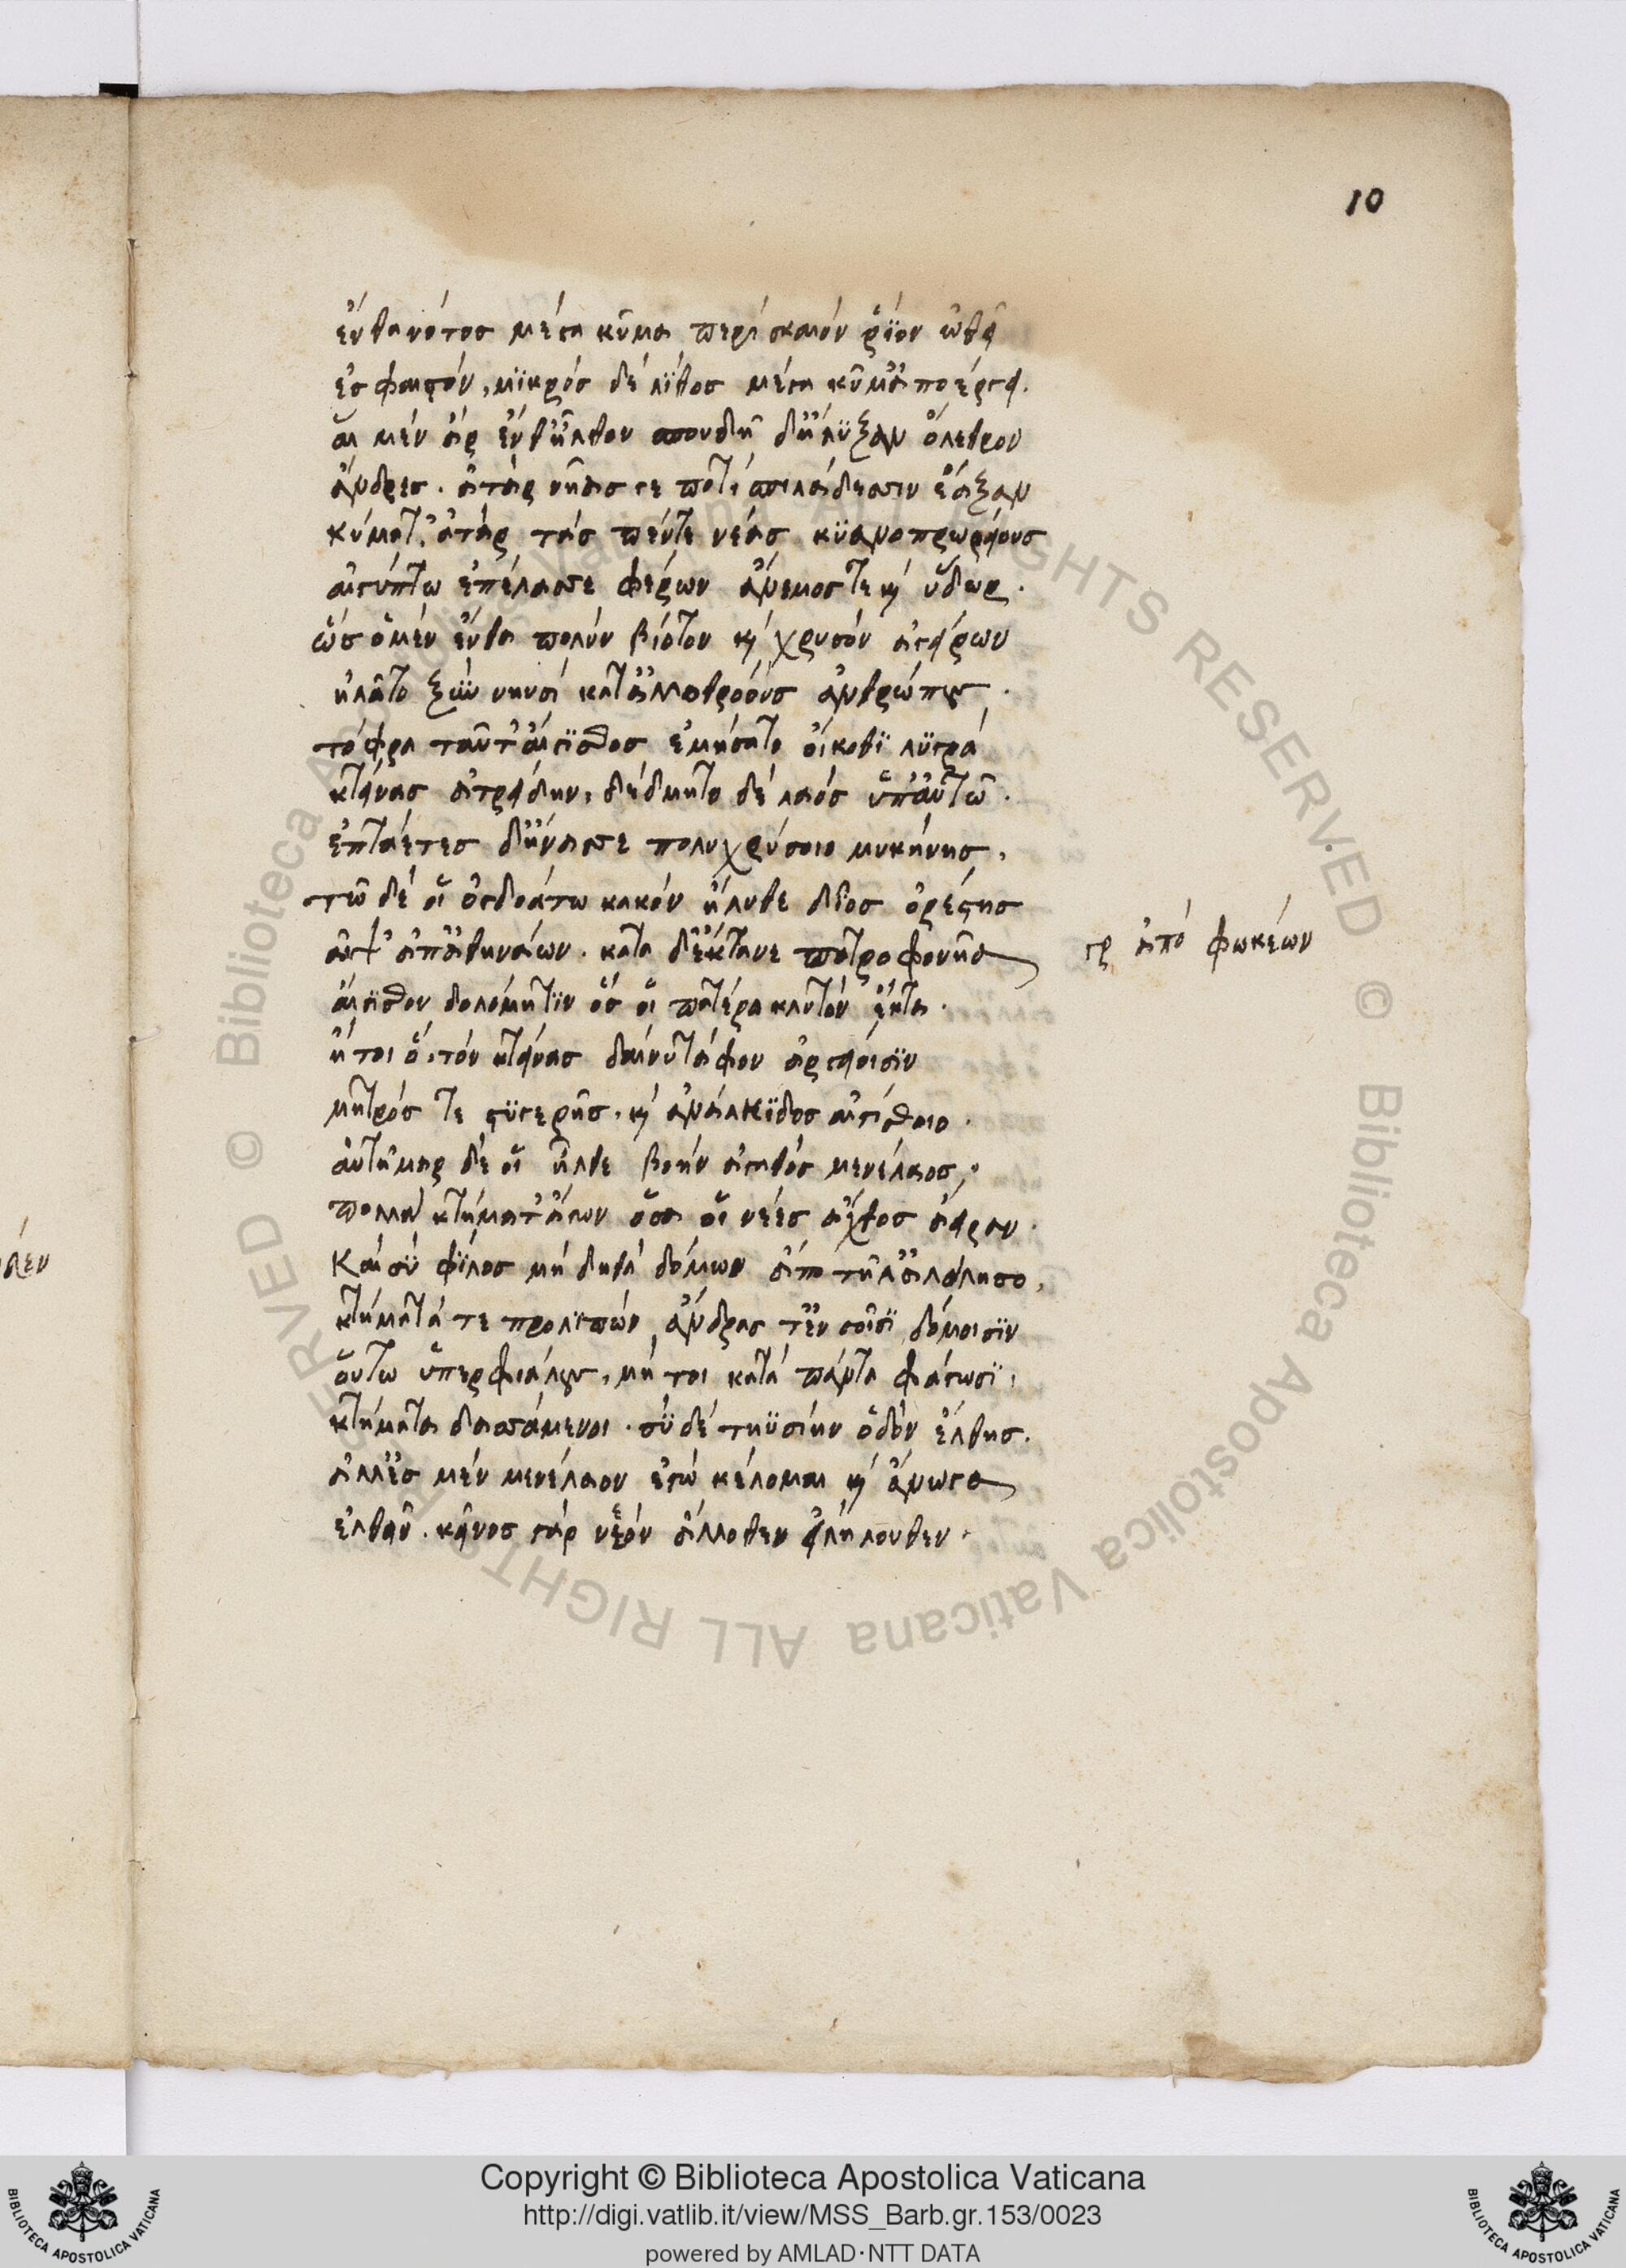 10
ἔνθα νότος μέγα κῦμα περὶ σκαιὸν ῥΐον ὠθεῖ
ἐς φαιστόν, μϊκρὸς δὲ λΐθος μέγα κῦμ' ἀποέργει.
αἳ μὲν ἂρ ἔνθ' ἦλθον σπουδῆ δ' ἤλϋξαν ὄλεθρον
ἄνδρες. ἀτὰρ νῆάς γε ποτὶ σπιλάδεσσιν ἔαξαν
κύματ'. ἀτὰρ τὰς πέντε νέας κϋανοπρωρείους
αἰγύπτω ἐπέλασσε φέρων ἄνεμός τε καὶ ὕδωρ.
ὣς ὃ μὲν ἔνθα πολὺν βίοτον καὶ χρυσὸν ἀγείρων
ἠλᾶτο ξὺν νηυσὶ κατ' ἀλλοθρόους ἀνθρώπους.
τόφρα ταῦτ' αἴγϊσθος ἐμήσατο οἴκοθϊ λϋγρὰ
κτείνας ἀτρείδην, δέδμητο δὲ λαὸς ὑπ' αὐτῶ.
ἑπτάετες δ' ἤνασσε πολυχρύσοιο μυκήνης,
τῶ δέ οἱ ὀγδοάτω κακὸν ἤλυθε δῖος ὀρέστης
ἂψ ἀπ' ἀθηνάων. κατὰ δ' ἔκτανε πατροφονῆα
γρ ἀπὸ φωκέων
αἴγϊσθον δολόμητϊν ὅς οἱ πατέρα κλυτὸν ἔκτα.
ἤτοι ὃ, τὸν κτείνας δαίνυ τάφον ἀργείοισϊν
μητρός τε στϋγερῆς. καὶ ἀνάλκϊδος αἰγίσθοιο.
αὐτῆμαρ δέ οἱ ἦλθε βοὴν ἀγαθὸς μενέλαος,
πολλὰ κτήματ' ἄγων ὅσα οἱ νέες ἄχθος ἄειραν.
Καὶ σὺ φΐλος μὴ δηθὰ δόμων ἄπο τῆλ' ἀλάλησο,
κτήματά τε προλϊπὼν, ἄνδρας τ' ἐν σοῖσϊ δόμοισϊν
οὕτω ὑπερφιάλους, μή τοι κατὰ πάντα φάγωσϊ,
κτήματα δασσάμενοι. σὺ δὲ τηϋσίην ὁδὸν ἔλθης.
ἀλλ' ἐς μὲν μενέλαον ἐγὼ κέλομαι καὶ ἄνωγα
ἐλθεῖν. κεῖνος γὰρ νέον ἄλλοθεν εἰλήλουθεν.
δεν
Copyright © Biblioteca Apostolica Vaticana
http://digi.vatlib.it/view/MSS_Barb.gr.153/0023
powered by AMLAD·NTT DATA
BIBLIOTECA APOSTOLICA VATICANA
BIBLIOTECA APOSTOLICA VATICANA
© Biblioteca Apostolica Vaticana ALL RIGHTS RESERVED © Biblioteca Apostolica Vaticana ALL RIGHTS RESERVED